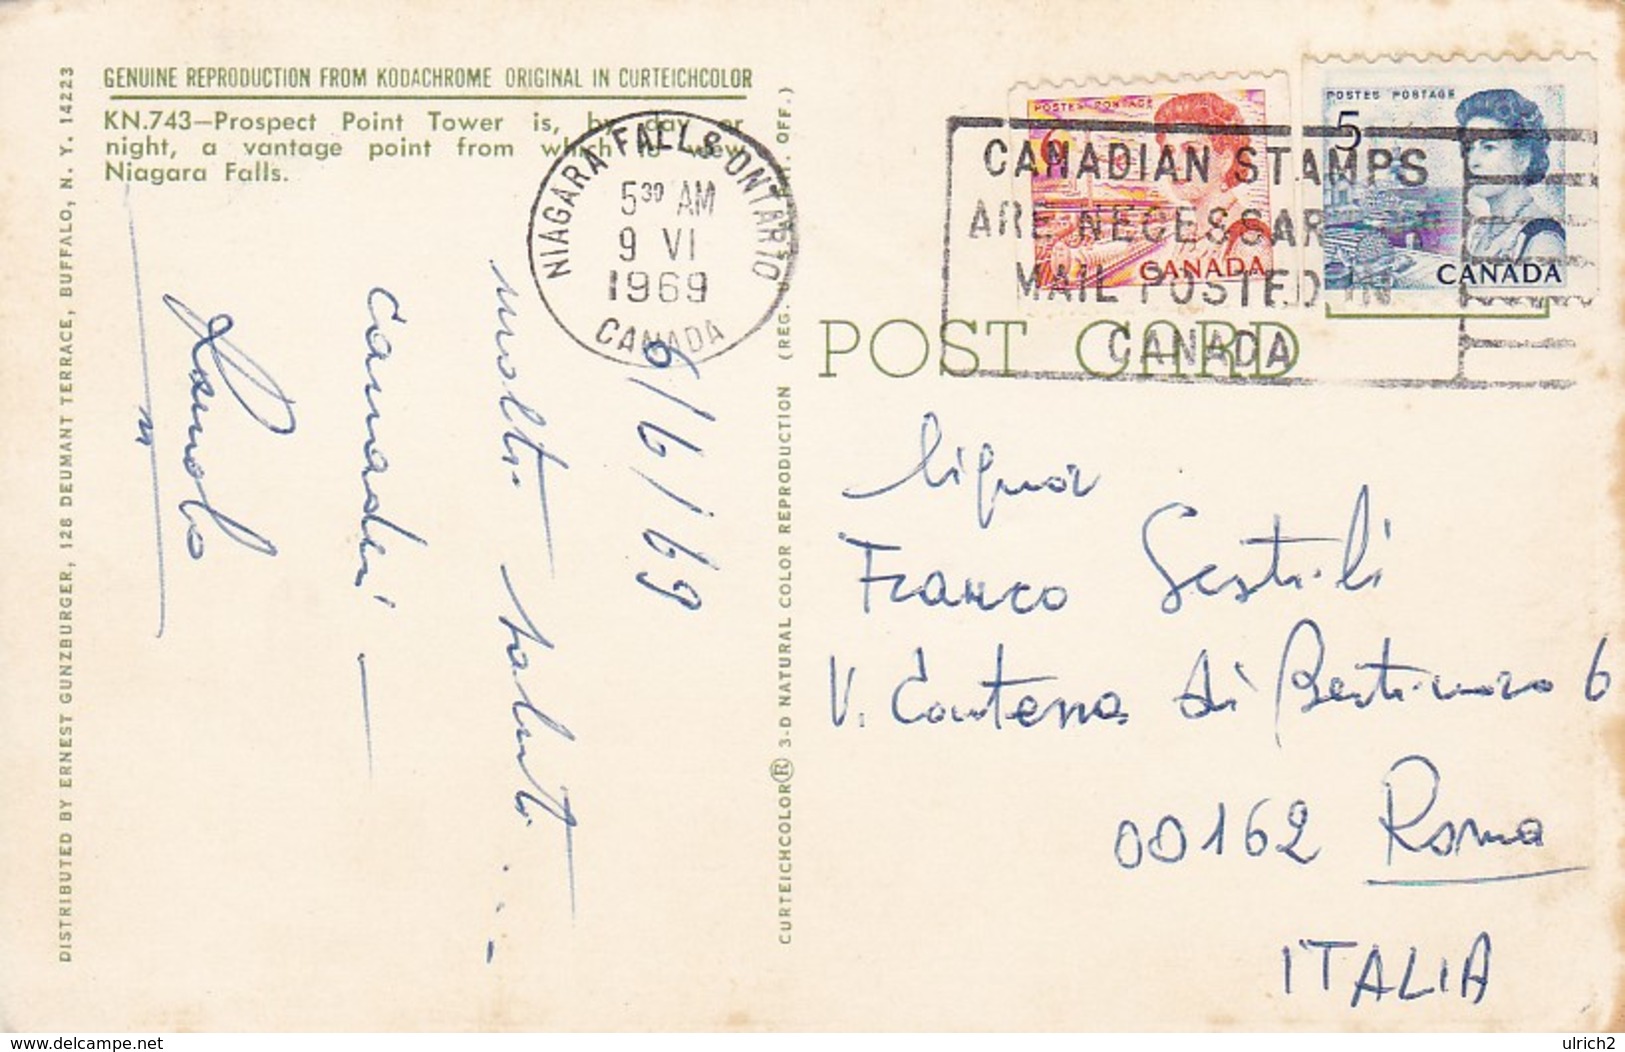 GENUINE REPRODUCTION FROM KODACHROME ORIGINAL IN CURTEICHCOLOR
KN.743—Prospect Point Tower is, by day or
night, a vantage point from which to view
Niagara Falls.
DISTRIBUTED BY ERNEST GUNZBURGER, 126 DEUMANT TERRACE, BUFFALO, N. Y. 14223
NIAGARA FALLS ONTARIO
5³⁰ AM
9 VI
1969
CANADA
6/6/69
molti saluti...
canadesi
CURTEICHCOLOR® 3-D NATURAL COLOR REPRODUCTION (REG. OFF.)
POSTES POSTAGE
6
CANADA
POSTES POSTAGE
5
CANADA
CANADIAN STAMPS
ARE NECESSARY
MAIL POSTED IN
CANADA
POST CARD
Signor
Franco Sestili
V. Contessa di Bertinoro 6
00162 Roma
ITALIA
www.delcampe.net
ulrich2